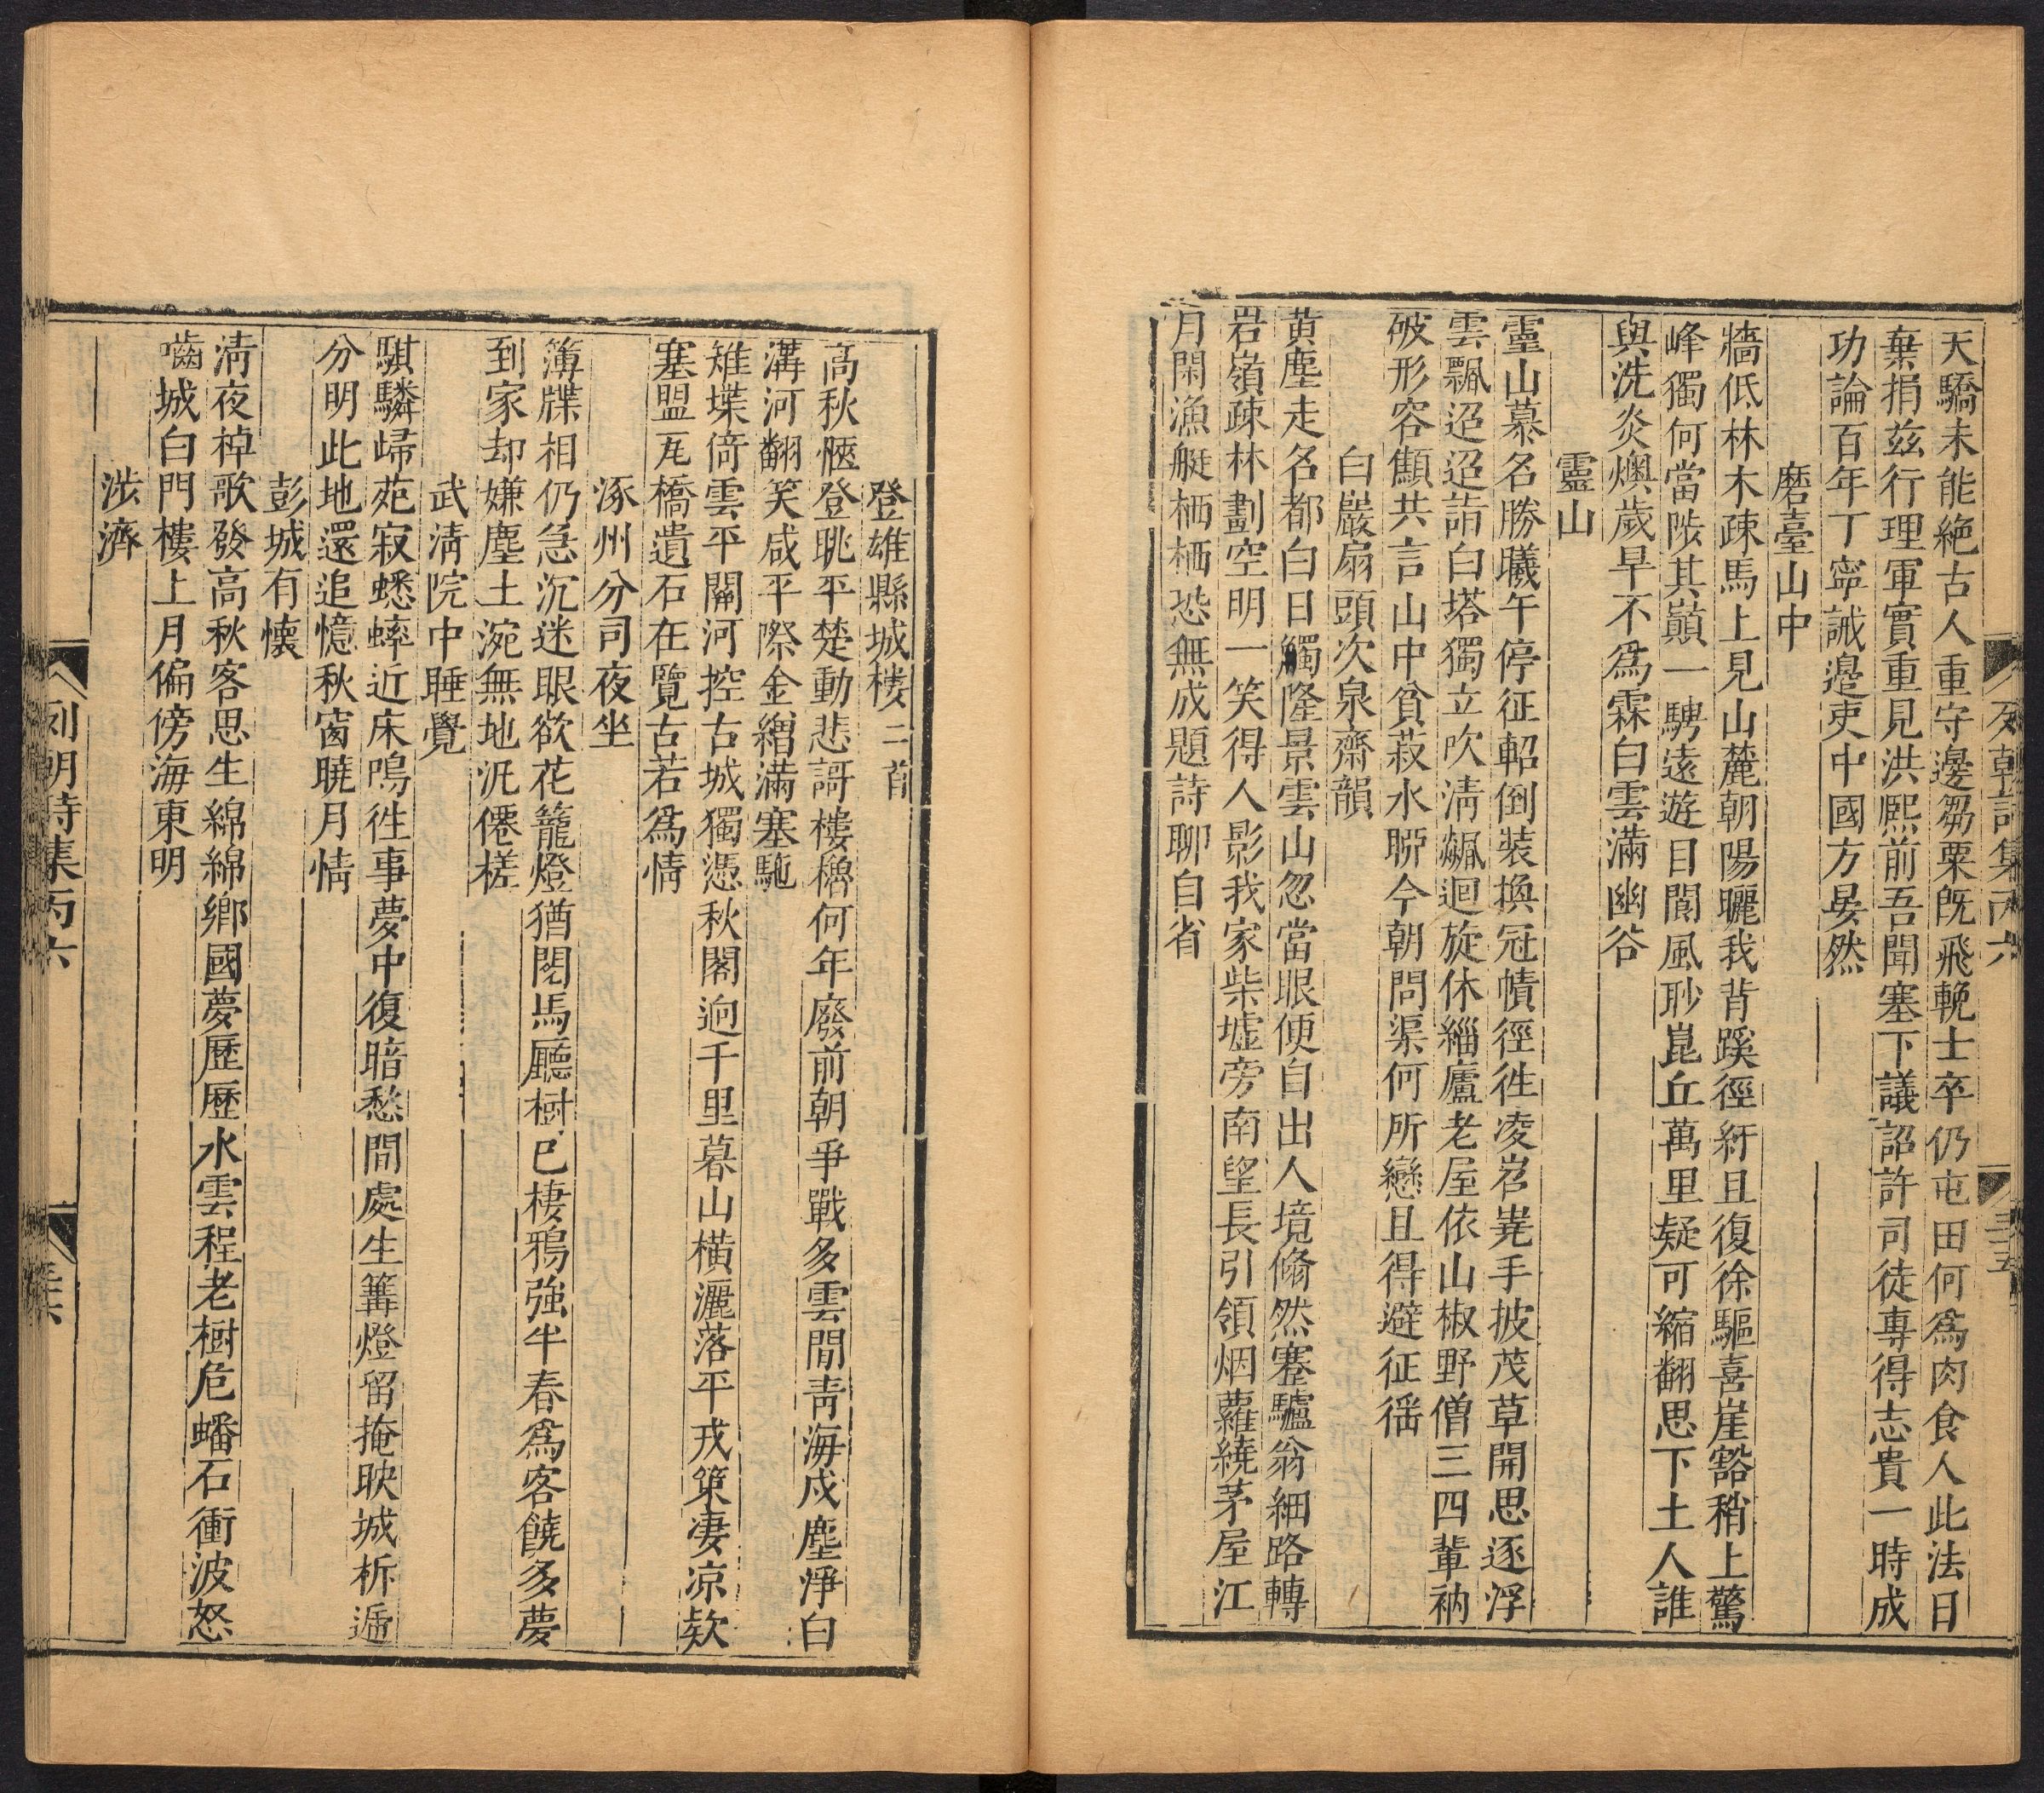 天驕未能絶古人重守邊芻粟旣飛輓士卒仍屯田何爲肉食人此法日
棄捐兹行理軍實重見洪熙前吾聞塞下議詔許司徒專得志貴一時成
功論百年丁寧誡邊吏中國方晏然
磨臺山中
牆低林木疎馬上見山麓朝陽曬我背蹊徑紆且復徐驅喜崖豁稍上驚
峰獨何當陟其巔一騁遠遊目閬風眇崑丘萬里疑可縮翻思下土人誰
與洗炎燠歲早不爲霖白雲滿幽谷
靈山
靈山慕名勝曦午停征軺倒裝換冠幘徑徃凌岧嶤手披茂草開思逐浮
雲飄迢迢詣白塔獨立吹淸飈迴旋休緇廬老屋依山椒野僧三四輩衲
破形容顦共言山中貧菽水聊今朝問渠何所戀且得避征徭
白巖扇頭次泉齋韻
黃塵走名都白日觸隆景雲山忽當眼便自出人境翛然蹇驢翁細路轉
岩嶺疎林劃空明一笑得人影我家柴墟旁南望長引領烟蘿繞茅屋江
月閑漁艇栖栖恐無成題詩聊自省
列朝詩集丙六
三五
登雄縣城樓二首
高秋愜登眺平楚動悲謌樓櫓何年廢前朝爭戰多雲閒靑海戍塵淨白
溝河翻笑咸平際金繒滿塞駞
雉堞倚雲平關河控古城獨憑秋閣迥千里暮山橫灑落平戎策凄凉欵
塞盟瓦橋遺石在覽古若爲情
涿州分司夜坐
簿牒相仍急沉迷眼欲花籠燈猶閱馬廳樹已棲鴉強半春爲客饒多夢
到家却嫌塵土涴無地汎僊槎
武淸院中睡覺
騏驎歸苑寂蟋蟀近床鳴徃事夢中復暗愁間處生篝燈留掩映城柝遞
分明此地還追憶秋窗曉月情
彭城有懷
淸夜棹歌發高秋客思生綿綿鄉國夢歷歷水雲程老樹危蟠石衝波怒
嚙城白門樓上月偏傍海東明
涉濟
列朝詩集丙六